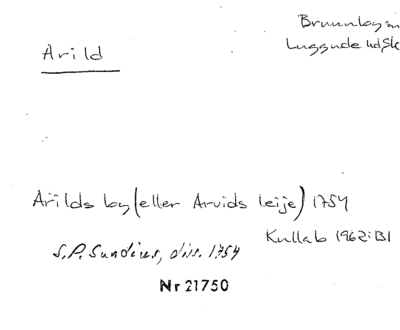 Arild
Brunnby sn
Luggude hd, Sk
Arilds by (eller Arvids leije) 1754
Kullab 1962:131
S.P. Sundius, diss. 1754
Nr 21750